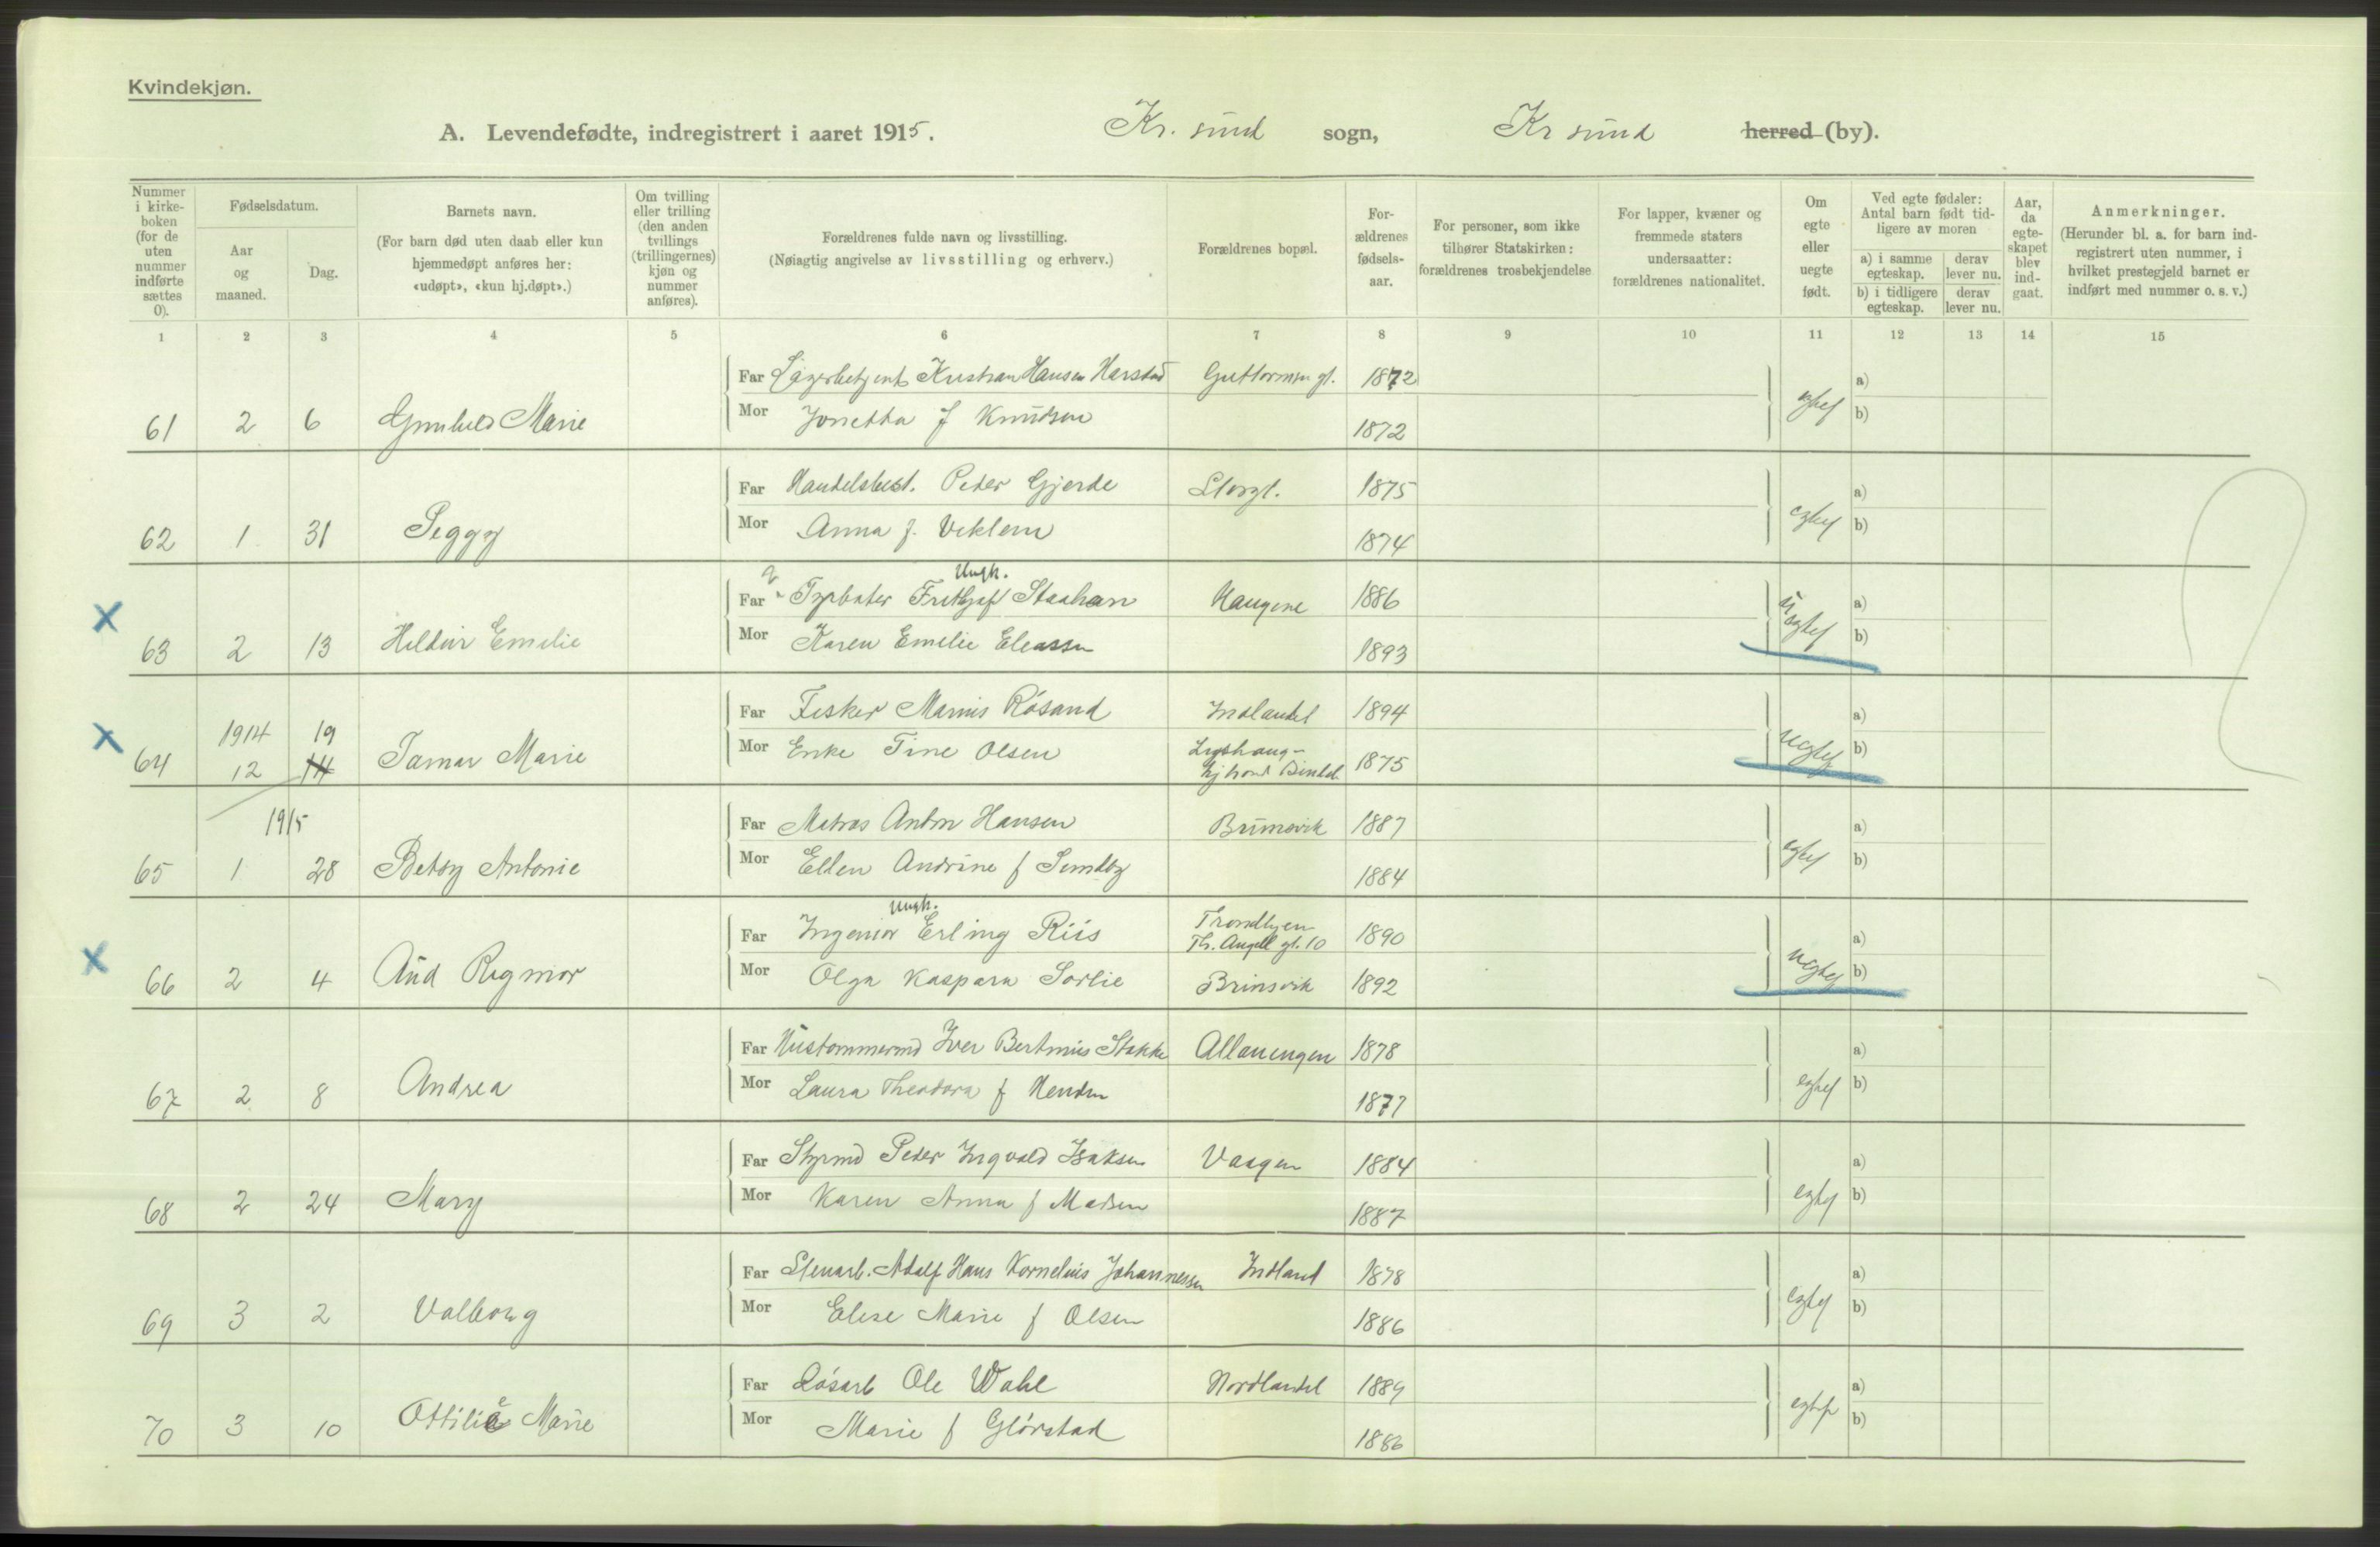 Kvindekjøn.
A. Levendefødte, indregistrert i aaret 1915. Kr. sund sogn, Kr sund herred (by).
Nummer i kirkeboken (for de uten nummer indførte sættes 0).
Fødselsdatum.
Aar og maaned.
Dag.
Barnets navn.
(For barn død uten daab eller kun hjemmedøpt anføres her: «udøpt», «kun hj.døpt».)
Om tvilling eller trilling (den anden tvillings (trillingernes) kjøn og nummer anføres).
Forældrenes fulde navn og livsstilling.
(Nøiagtig angivelse av livsstilling og erhverv.)
Forældrenes bopæl.
For-ældrenes fødsels-aar.
For personer, som ikke tilhører Statskirken: forældrenes trosbekjendelse
For lapper, kvæner og fremmede staters undersaatter: forældrenes nationalitet.
Om egte eller uegte født.
Ved egte fødsler: Antal barn født tid-ligere av moren
a) i samme egteskap. derav lever nu.
b) i tidligere egteskap. derav lever nu.
Aar, da egte-skapet blev ind-gaat.
Anmerkninger.
(Herunder bl. a. for barn ind-registrert uten nummer, i hvilket prestegjeld barnet er indført med nummer o. s. v.)
1 2 3 4 5 6 7 8 9 10 11 12 13 14 15
Far Kristian Hansen Harstad 1872 a)
61 2 6 Gunhild Marie Mor Jonetta f Knudsen 1872 b)
Far Handelsbest. Peder Gjerde Storgt. 1875 a)
62 1 31 Peggy Mor Anna f. Veklem 1874 egtef b)
Ungk.
Far Fritjof Staahan Haugene 1886 a)
X 63 2 13 Hildur Emilie Mor Karen Emilie Eleassen 1893 uegtef b)
Far Fisker Marius Røsand Indlandet 1894 a)
X 64 1914 12 19 14 Tamar Marie Mor Enke Tine Olsen 1875 uegtef b)
1915
Far Matros Anton Hansen Brunsvik 1887 a)
65 1 28 Betsy Antonie Mor Ellen Andrine f Sundby 1884 egtef b)
Ungk.
Far Ingeniør Erling Riis Trondhjem Th. Angell gt. 10 1890 a)
X 66 2 4 Aud Rigmor Mor Olga Kaspara Sorlie Brunsvik 1892 uegtef b)
Far Hustømmermd Iver Bertinius Stakke Allanengen 1878 a)
67 2 8 Andrea Mor Laura Theodora f 1877 egtef b)
Far Styrmd Peder Ingvald Isaksen Vaagen 1884 a)
68 2 24 Mary Mor Karen Anna f Madsen 1887 egtef b)
Far Stenarb. Adolf Hans Kornelius Johannessen Indland 1878 a)
69 3 2 Valborg Mor Elise Marie f Olsen 1886 egtef b)
Far Løsarb Ole Wahl Nordlandet 1889 a)
70 3 10 Ottilie Marie Mor Marie f Glørstad 1886 egtef b)